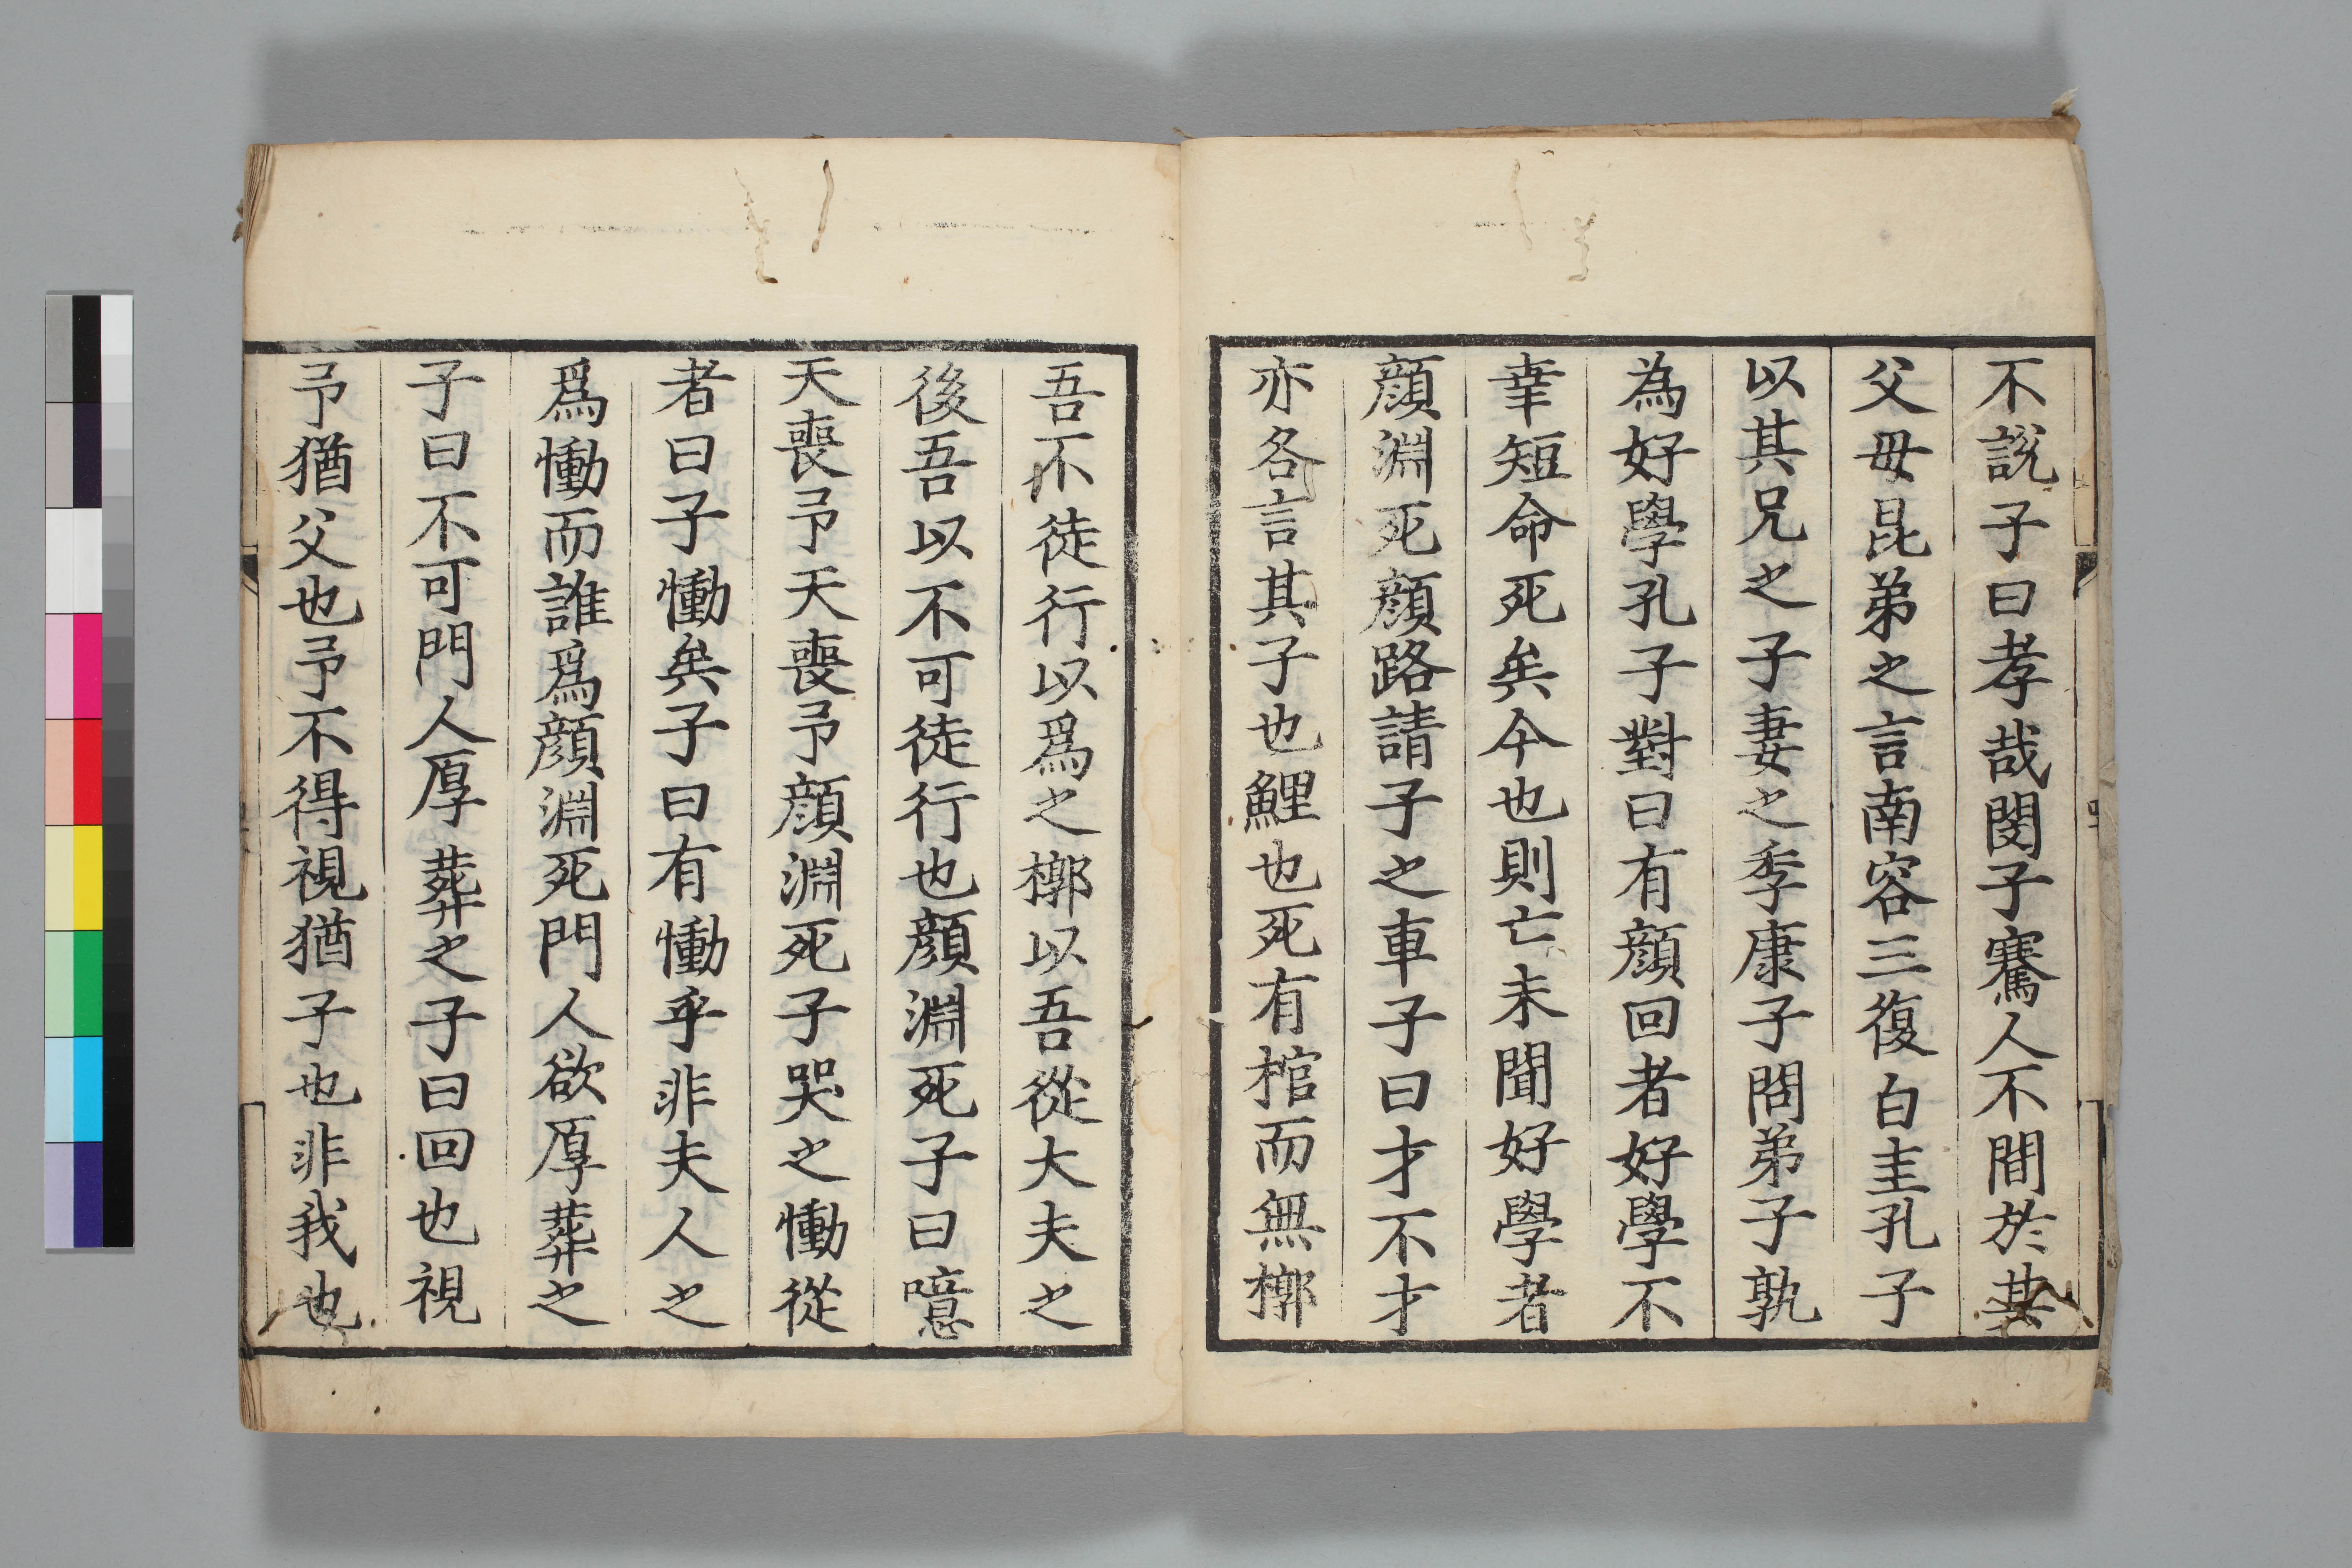 不說子曰孝哉閔子騫人不間於其
父母昆弟之言南容三復白圭孔子
以其兄之子妻之季康子問弟子孰
為好學孔子對曰有顔回者好學不
幸短命死矣今也則亡未聞好學者
顔淵死顔路請子之車子曰才不才
亦各言其子也鯉也死有棺而無槨
吾不徒行以爲之槨以吾從大夫之
後吾以不可徒行也顔淵死子曰噫
天喪予天喪予顔淵死子哭之慟從
者曰子慟矣子曰有慟乎非夫人之
爲慟而誰爲顔淵死門人欲厚葬之
子曰不可門人厚葬之子曰回也視
予猶父也予不得視猶子也非我也